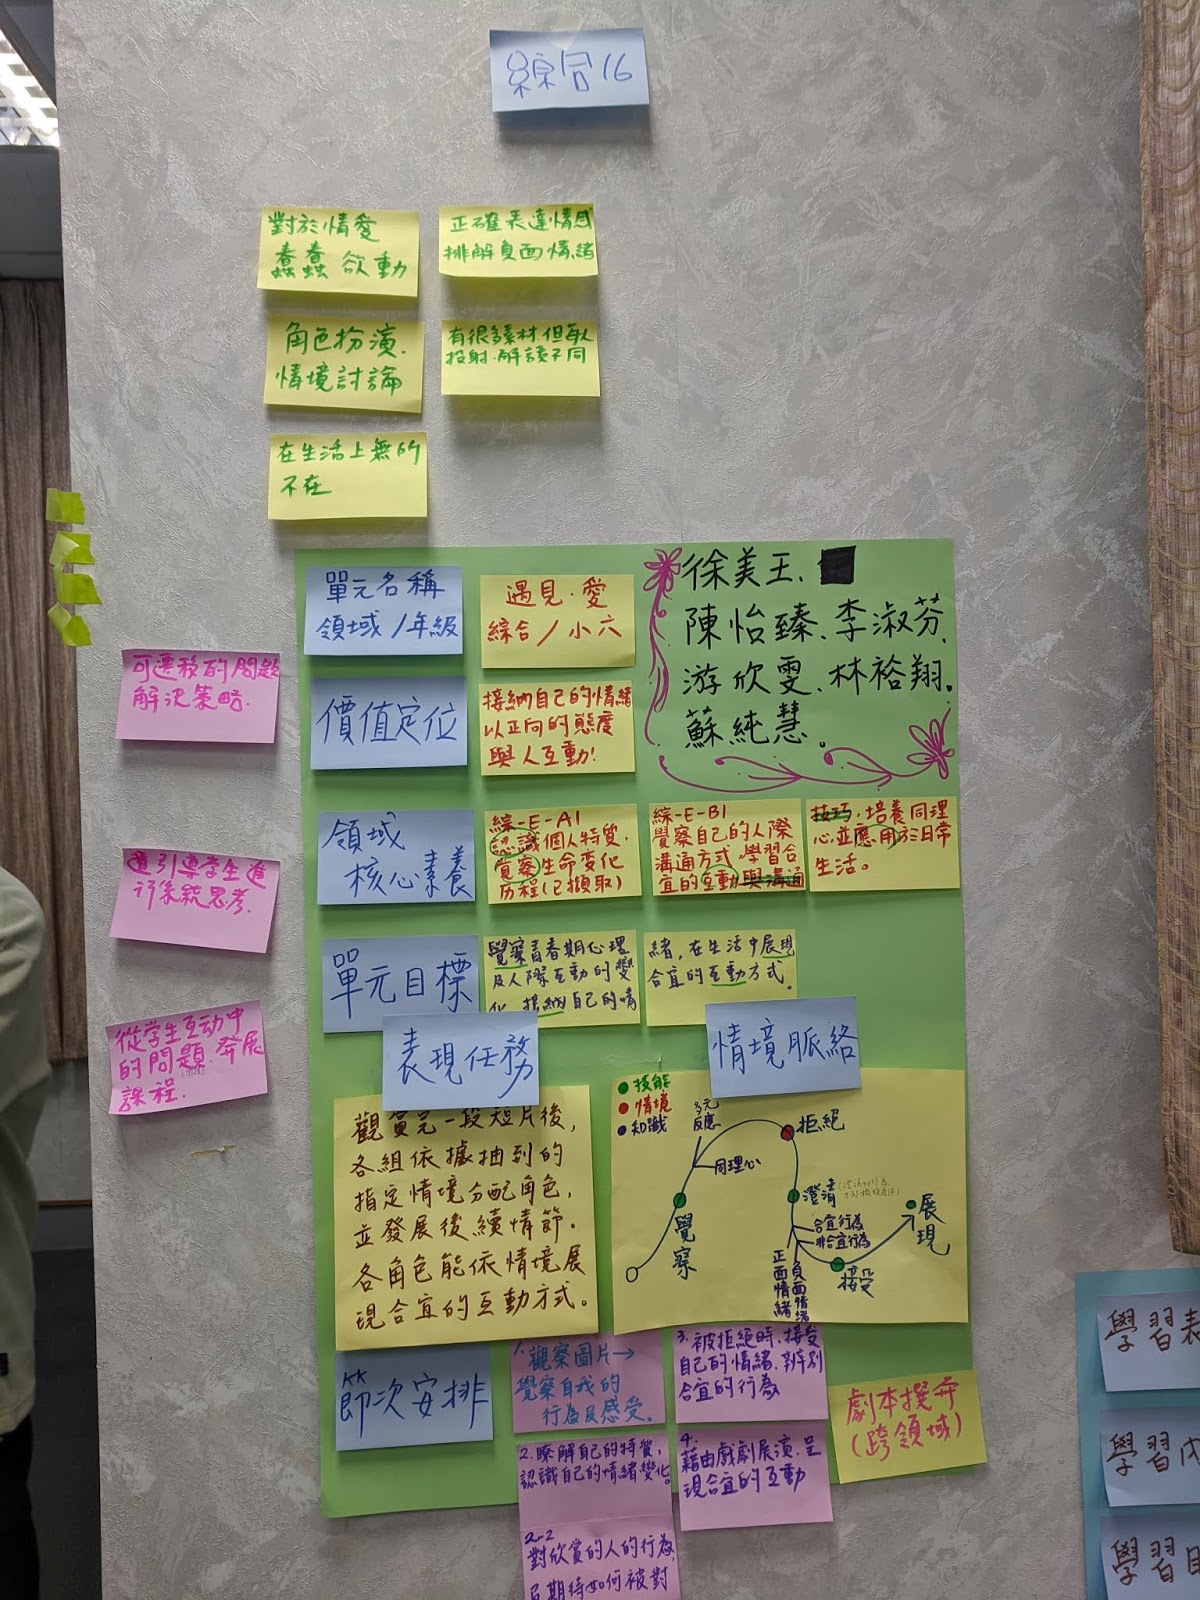 綜合16
對於情愛
蠢蠢欲動
正確表達情感
排解負面情緒
角色扮演.
情境討論
有很多素材.但每人
投射.解讀不同
在生活上無所
不在
單元名稱
領域/年級
遇見·愛
綜合/小六
徐美王.
陳怡臻.李淑芬.
游欣雯.林裕翔.
蘇純慧。
可遷移的問題
解決策略.
價值定位
接納自己的情緒
以正向的態度
與人互動!
領域
核心素養
綜-E-A1
認識個人特質,
覺察生命变化
历程(已擷取)
綜-E-B1
覺察自己的人際
溝通方式,學習合
宜的互動與溝通
技巧,培養同理
心並應用於日常
生活。
引導學生進
行系統思考.
單元目標
覺察青春期心理
及人際互動的變
化,接納自己的情
緒,在生活中展現
合宜的互動方式.
從学生互动中
的問題發展
課程.
表現任務
情境脈絡
觀賞完一段短片後,
各組依據抽到的
指定情境分配角色,
並發展後續情節。
各角色能依情境展
現合宜的互動方式。
技能
情境
知識
多元
反應
同理心
拒絕
覺察
澄清
合宜行為
非合宜行為
正面情緒
負面情緒
接受
展現
節次安排
1.觀察圖片→
覺察自我的
行為及感受。
2.瞭解自己的特質,
認識自己的情緒變化。
2-2
對欣賞的人的行為,
期待如何被對
3.被拒絕時.接受
自己的情緒.辨別
合宜的行為
4.
藉由戲劇展演.呈
現合宜的互動
劇本撰寫
(跨領域)
學習表
學習
學習目